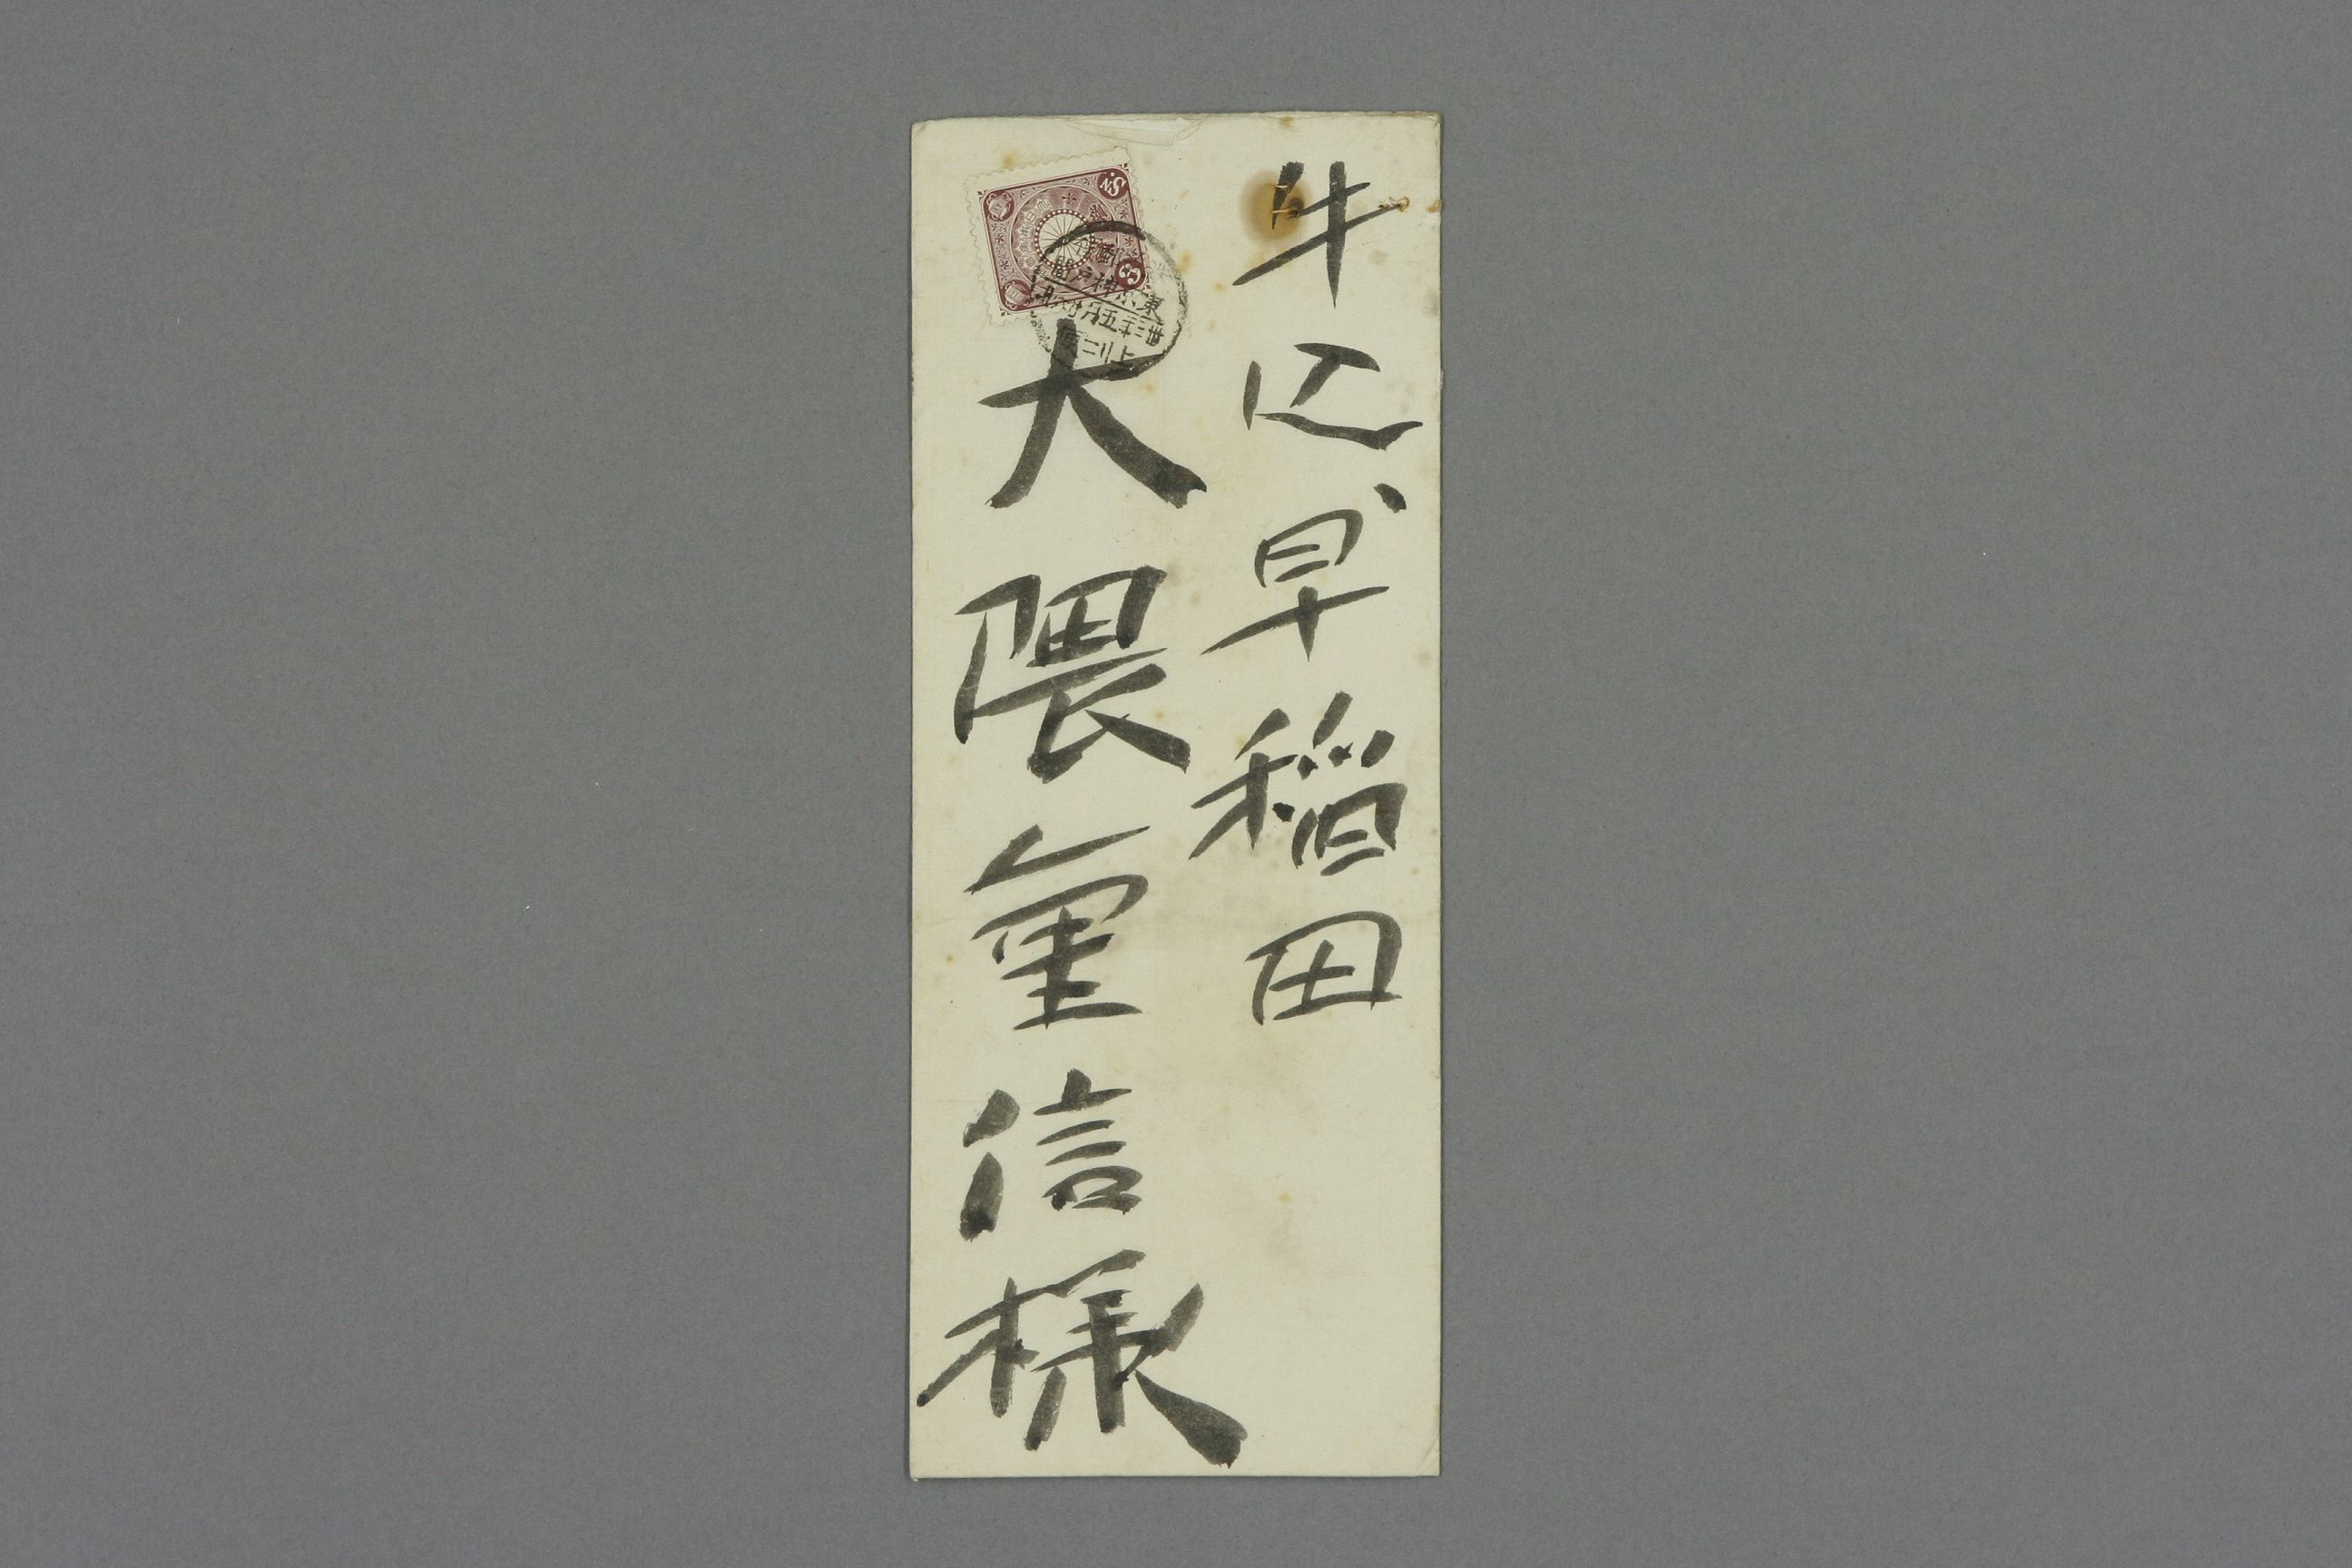 牛込、早稲田
大隈重信様
3 Sn.